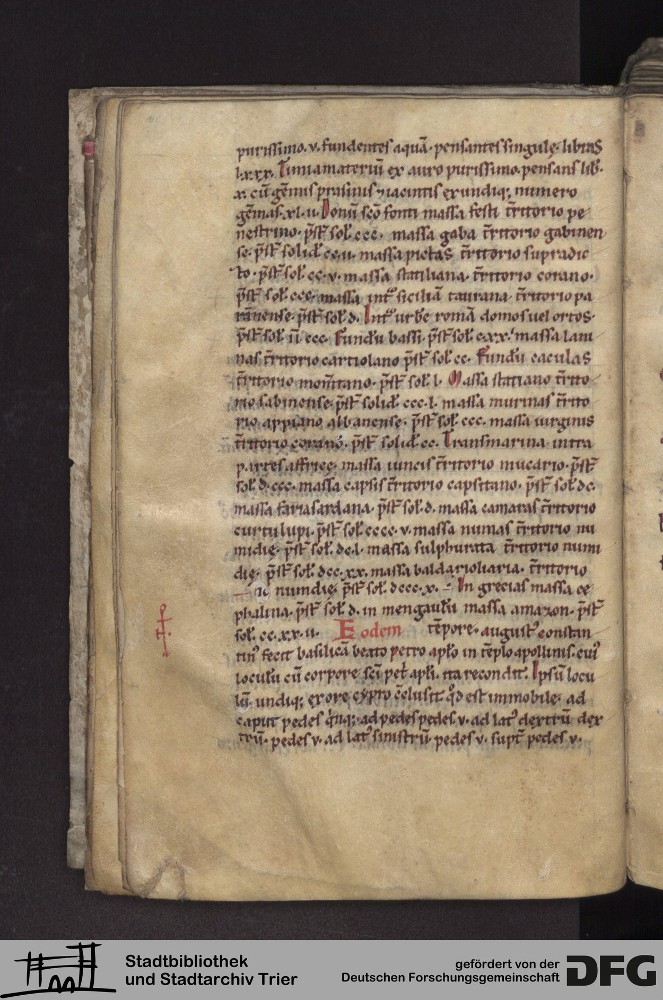 purissimo. v. fundentes aquā. pensantes singule. libras
l.xxx. Timiamateriū ex auro purissimo. pensans lib̄.
x. cū gēmis prasinis ⁊ iacintis ex undiq; numero
gēmas. xl. ii. Donū scō fonti massa festi t̄ritorio pe
nestrino. p̄st̄ sol̄. ccc. massa gaba t̄ritorio gabinen
se. p̄st̄ solid̄. cc. ii. massa pictas t̄ritorio supradic
to. p̄st̄ sol̄. cc. v. massa statiliana. t̄ritorio corano.
p̄st̄ sol̄. ccc. massa int᷒ siciliā taurana. t̄ritorio pa
rānense. p̄st̄ sol̄. d. Int᷒ urbe romā domos uel ortos.
p̄st̄ sol̄. ii ccc. Fundū bassi. p̄st̄ sol̄. c.xx. massa lam
nas t̄ritorio cartiolano p̄st̄ sol̄. cc. Fundū caculas
t̄ritorio momītano. p̄st̄ sol̄. l. Massa statiano t̄rito
rio sabinense. p̄st̄ solid̄. ccc. l. massa murinas t̄rito
rio appiano albanense. p̄st̄ sol̄. ccc. massa uirginis
t̄ritorio coranō. p̄st̄ solid̄. cc. Transmarina intra
partes affrice. massa iuncis t̄ritorio mucario. p̄st̄
sol̄. d. ccc. massa capsis t̄ritorio capsitano. p̄st̄ sol̄. dc.
massa fariasardana. p̄st̄ sol̄. d. massa camaras t̄ritorio
curtulupi. p̄st̄ sol̄. cccc. v. massa numas t̄ritorio nu
midie. p̄st̄ sol̄. dc. l. massa sulphurata t̄ritorio numi
die. p̄st̄ sol̄. dcc. xx. massa baldarioliaria. t̄ritorio
numidie. p̄st̄ sol̄. dccc. x. In grecias massa ce
phalina. p̄st̄ sol̄. d. in mengaulū massa amazon. p̄st̄
sol̄. cc. xx. ii. Eodem tēpore. august᷒ constan
tin᷒ fecit basilicā beato petro apl̄o in tēplo apollinis. cui᷒
loculū cū corpore sc̄i pet̄ apl̄i. ita recondit. Ipsū locu
lū. undiq; ex ere cypro c̄clusit. q̊d est immobile. ad
caput pedes q̇nq;. ad pedes pedes. v. ad lat᷒ dextrū dex
trū. pedes v. ad lat᷒ sinistrū pedes v. supt̄ pedes v.
Stadtbibliothek
und Stadtarchiv Trier
gefördert von der
Deutschen Forschungsgemeinschaft
DFG